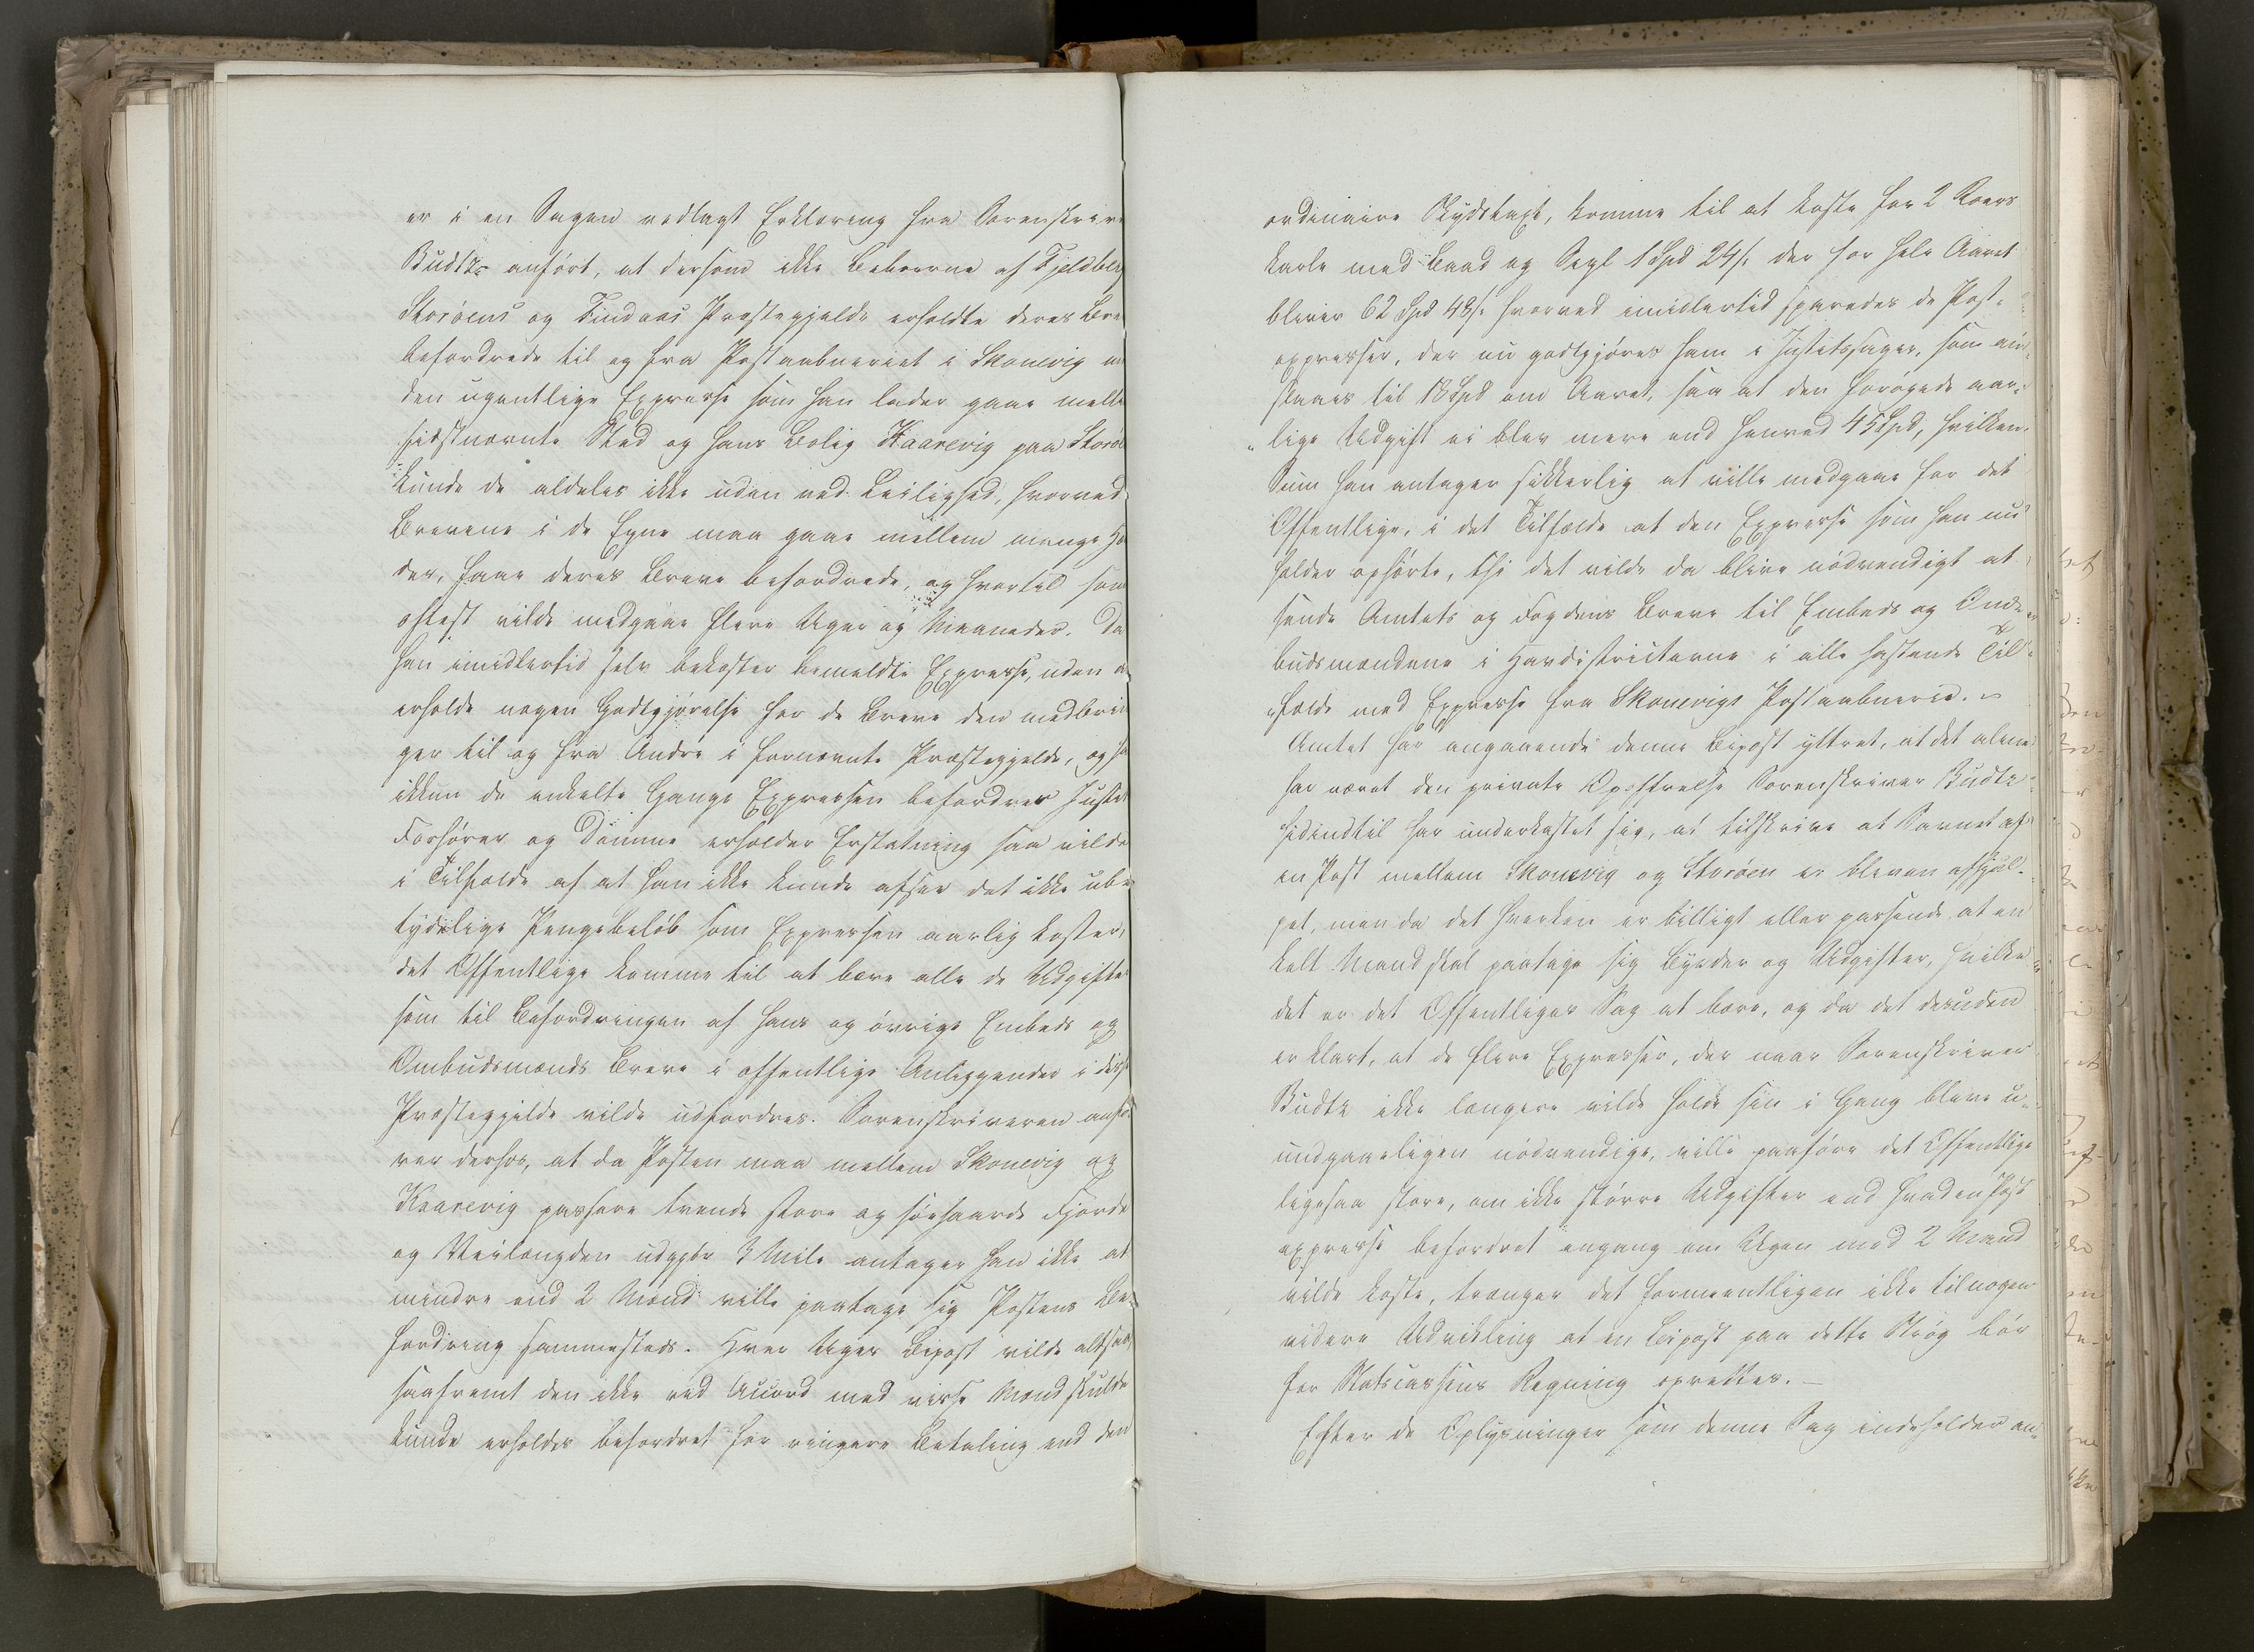 er i en Sagen vedlagt Erklæring fra Sorenskriver
Budtz anført, at dersom ikke Beboerne af Fjeldberg
Storöens og Findaas Præstegjelde erholdte deres Bre
befordrede til og fra Postaabneriet i Skonevig
den ugentlige Expresse som han lader gaae mell
sidstnævnte Sted og hans Bolig Kaarevig paa Storö
kunde de aldeles ikke uden ved Leilighed, hvorved
Brevene i de Egne maa gaae mellem mange Hæ
der, faae deres Breve befordrede, og hvortil som
oftest vilde medgaae flere Uger og Maaneder. Da
han imidlertid selv bekoster bemeldte Expresse, uden a
erholde nogen Godtgjørelse for de Breve den medbrin
ger til og fra Andre i fornævnte Præstegjelde, og
ikkun de enkelte Gange Expressen befordrer Justit
Forhører og Domme erholder Erstatning saa vilde
i Tilfælde af at han ikke kunde afsee det ikke ube
tydelige Pengebeløb som Expressen aarlig koster,
det Offentlige komme til at bære alle de Udgifter
som til Befordringen af hans og øvrige Embeds og
Ombudsmænds Breve i offentlige Anliggender i disse
Præstegjelde vilde udfordres. Sorenskriveren anfø
rer derhos, at da Posten maa mellem Skonevig og
Kaarevig passere trende store og söehaarde Fjorde
og Veilængden udgjör 3 Mile antager han ikke at
mindre end 2 Mænd ville paatage sig Postens Be-
fordring sammesteds. Hver Uges Bipost vilde altsaa,
saafremt den ikke ved Accord med visse Mænd skulde
kunde erholdes befordret for ringere Betaling end den
ordinaire Skydstaxt, komme til at koste for 2 Roers
karle med Baad og Segl 1 Spd 24 s. der for hele Aaret
bliver 62 Spd 48 s. hvorved imidlertid sparedes de Post-
expresser, der nu godtgjøres ham i Justitssager, som an-
slaaes til 18 Spd om Aaret, saa at den forøgede aar-
lige Udgift ei blev mere end henved 45 Spd, hvilken
Sum han antager sikkerlig at ville medgaae for det
Offentlige, i det Tilfælde at den Expresse som han nu
holder ophørte, thi det vilde da blive nödvendigt at
sende Amtets og Fogdens Breve til Embeds og Om-
budsmændene i Havdistricterne i alle hastende Til-
fælde med Expresse fra Skonevigs Postaabnerie.
Amtet har angaaende denne Bipost yttret, at det alene
har været den private Opoffrelse Sorenskriver Budtz
hidindtil har underkastet sig, at tilskrive at Savnet af
en Post mellem Skonevig og Storöen er bleven afhjul-
pet, men da det hverken er billigt eller passende, at en
kelt Mand skal paatage sig Byrder og Udgifter, hvilke
det er det Offentliges Sag at bære, og da det desuden
er klart, at de flere Expresser, der naar Sorenskriver
Budtz ikke længere vilde holde sin i Gang bleve u-
undgaaeligen nödvendige, ville paaføre det Offentlige
ligesaa store, om ikke større Udgifter end hvad en Post
expresse befordret engang om Ugen med 2 Mænd
vilde koste, trænger det formeentligen ikke til nogen
videre Udvikling at en Bipost paa dette Strøg bör
for Statscassens Regning oprettes.
Efter de Oplysninger som denne Sag indeholder an-